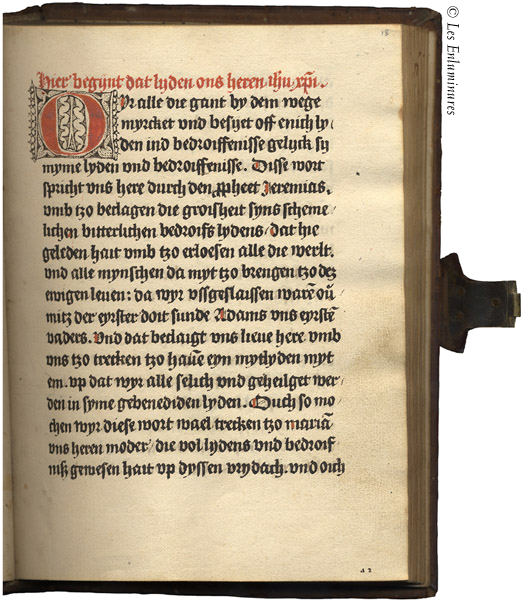 © Les Enluminures
18
Hier begÿnt dat lyden ons heren ihu xpi.
OYr alle die gant by dem wege
myrcket vnd besyet off enich ly/
den ind bedroiffenisse gelyck sy
myme lyden vnd bedroiffenisse. Disse wort
spricht vns here durch den ppheet Jeremias.
vmb tzo beclagen die groisheit syns scheme/
lichen bitterlichen bedroifs lydens/ dat hie
geleden hait vmb tzo erloesen alle die werlt.
vnd alle mynschen da myt tzo brengen tzo dez
ewigen leuen: da wyr vssgeslaissen warē oū
mitz der eyrster doit sunde Adams vns eyrstē
vaders. Vnd dat beclaigt vns lieue here vmb
vns tzo trecken tzo hauē eyn mytlyden myt
em. vp dat wyr alle selich vnd geheilget wer/
den in syme gebenediden lyden. Ouch so mo/
chen wyr diese wort wael trecken tzo mariā
vns heren moder/ die vol lydens vnd bedroif/
nisz gewesen hait vp dyssen vrydach. vnd oich
a2